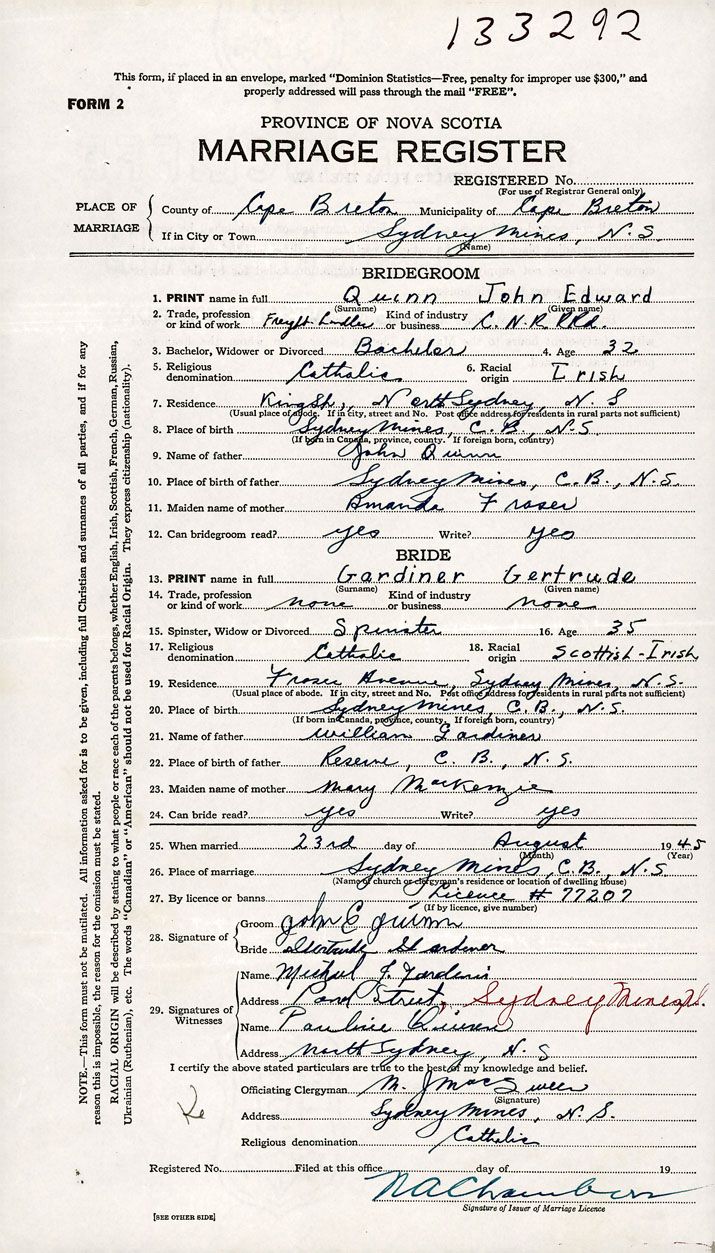 133292
This form, if placed in an envelope, marked "Dominion Statistics—Free, penalty for improper use $300," and
properly addressed will pass through the mail "FREE".
FORM 2
PROVINCE OF NOVA SCOTIA
MARRIAGE REGISTER
REGISTERED No.
(For use of Registrar General only)
PLACE OF MARRIAGE
County of Cape Breton Municipality of Cape Breton
If in City or Town Sydney Mines, N.S.
(Name)
BRIDEGROOM
1. PRINT name in full Quinn John Edward
(Surname) (Given name)
2. Trade, profession or kind of work Freight Kind of industry or business C.N.R. RRd.
3. Bachelor, Widower or Divorced Bachelor 4. Age 32
5. Religious denomination Catholic 6. Racial origin Irish
7. Residence King St., North Sydney, N.S
(Usual place of abode. If in city, street and No. Post office address for residents in rural parts not sufficient)
8. Place of birth Sydney Mines, C.B., N.S.
(If born in Canada, province, county. If foreign born, country)
9. Name of father John Quinn
10. Place of birth of father Sydney Mines, C.B., N.S.
11. Maiden name of mother Amanda Fraser
12. Can bridegroom read? yes Write? yes
BRIDE
13. PRINT name in full Gardiner Gertrude
(Surname) (Given name)
14. Trade, profession or kind of work none Kind of industry or business none
15. Spinster, Widow or Divorced Spinster 16. Age 35
17. Religious denomination Catholic 18. Racial origin Scottish-Irish
19. Residence Fraser Avenue, Sydney Mines, N.S.
(Usual place of abode. If in city, street and No. Post office address for residents in rural parts not sufficient)
20. Place of birth Sydney Mines, C.B., N.S.
(If born in Canada, province, county. If foreign born, country)
21. Name of father William Gardiner
22. Place of birth of father Reserve, C.B., N.S.
23. Maiden name of mother Mary MacKenzie
24. Can bride read? yes Write? yes
25. When married 23rd day of August 1945
(Month) (Year)
26. Place of marriage Sydney Mines, C.B., N.S.
(Name of church or clergyman's residence or location of dwelling house)
27. By licence or banns Licence # 77207
(If by licence, give number)
28. Signature of
Groom John E Quinn
Bride Gertrude Gardiner
29. Signatures of Witnesses
Name Michael J. Gardiner
Address Pond Street, Sydney Mines
Name Pauline Quinn
Address North Sydney, N.S
I certify the above stated particulars are true to the best of my knowledge and belief.
Officiating Clergyman M. J. MacSween
(Signature)
Address Sydney Mines, N.S.
Religious denomination Catholic
Registered No. Filed at this office day of 19
N A Chambers
Signature of Issuer of Marriage Licence
[SEE OTHER SIDE]
NOTE.—This form must not be mutilated. All information asked for is to be given, including full Christian and surnames of all parties, and if for any
reason this is impossible, the reason for the omission must be stated.
RACIAL ORIGIN will be described by stating to what people or race each of the parents belongs, whether English, Irish, Scottish, French, German, Russian,
Ukrainian (Ruthenian), etc. The words "Canadian" or "American" should not be used for Racial Origin. They express citizenship (nationality).